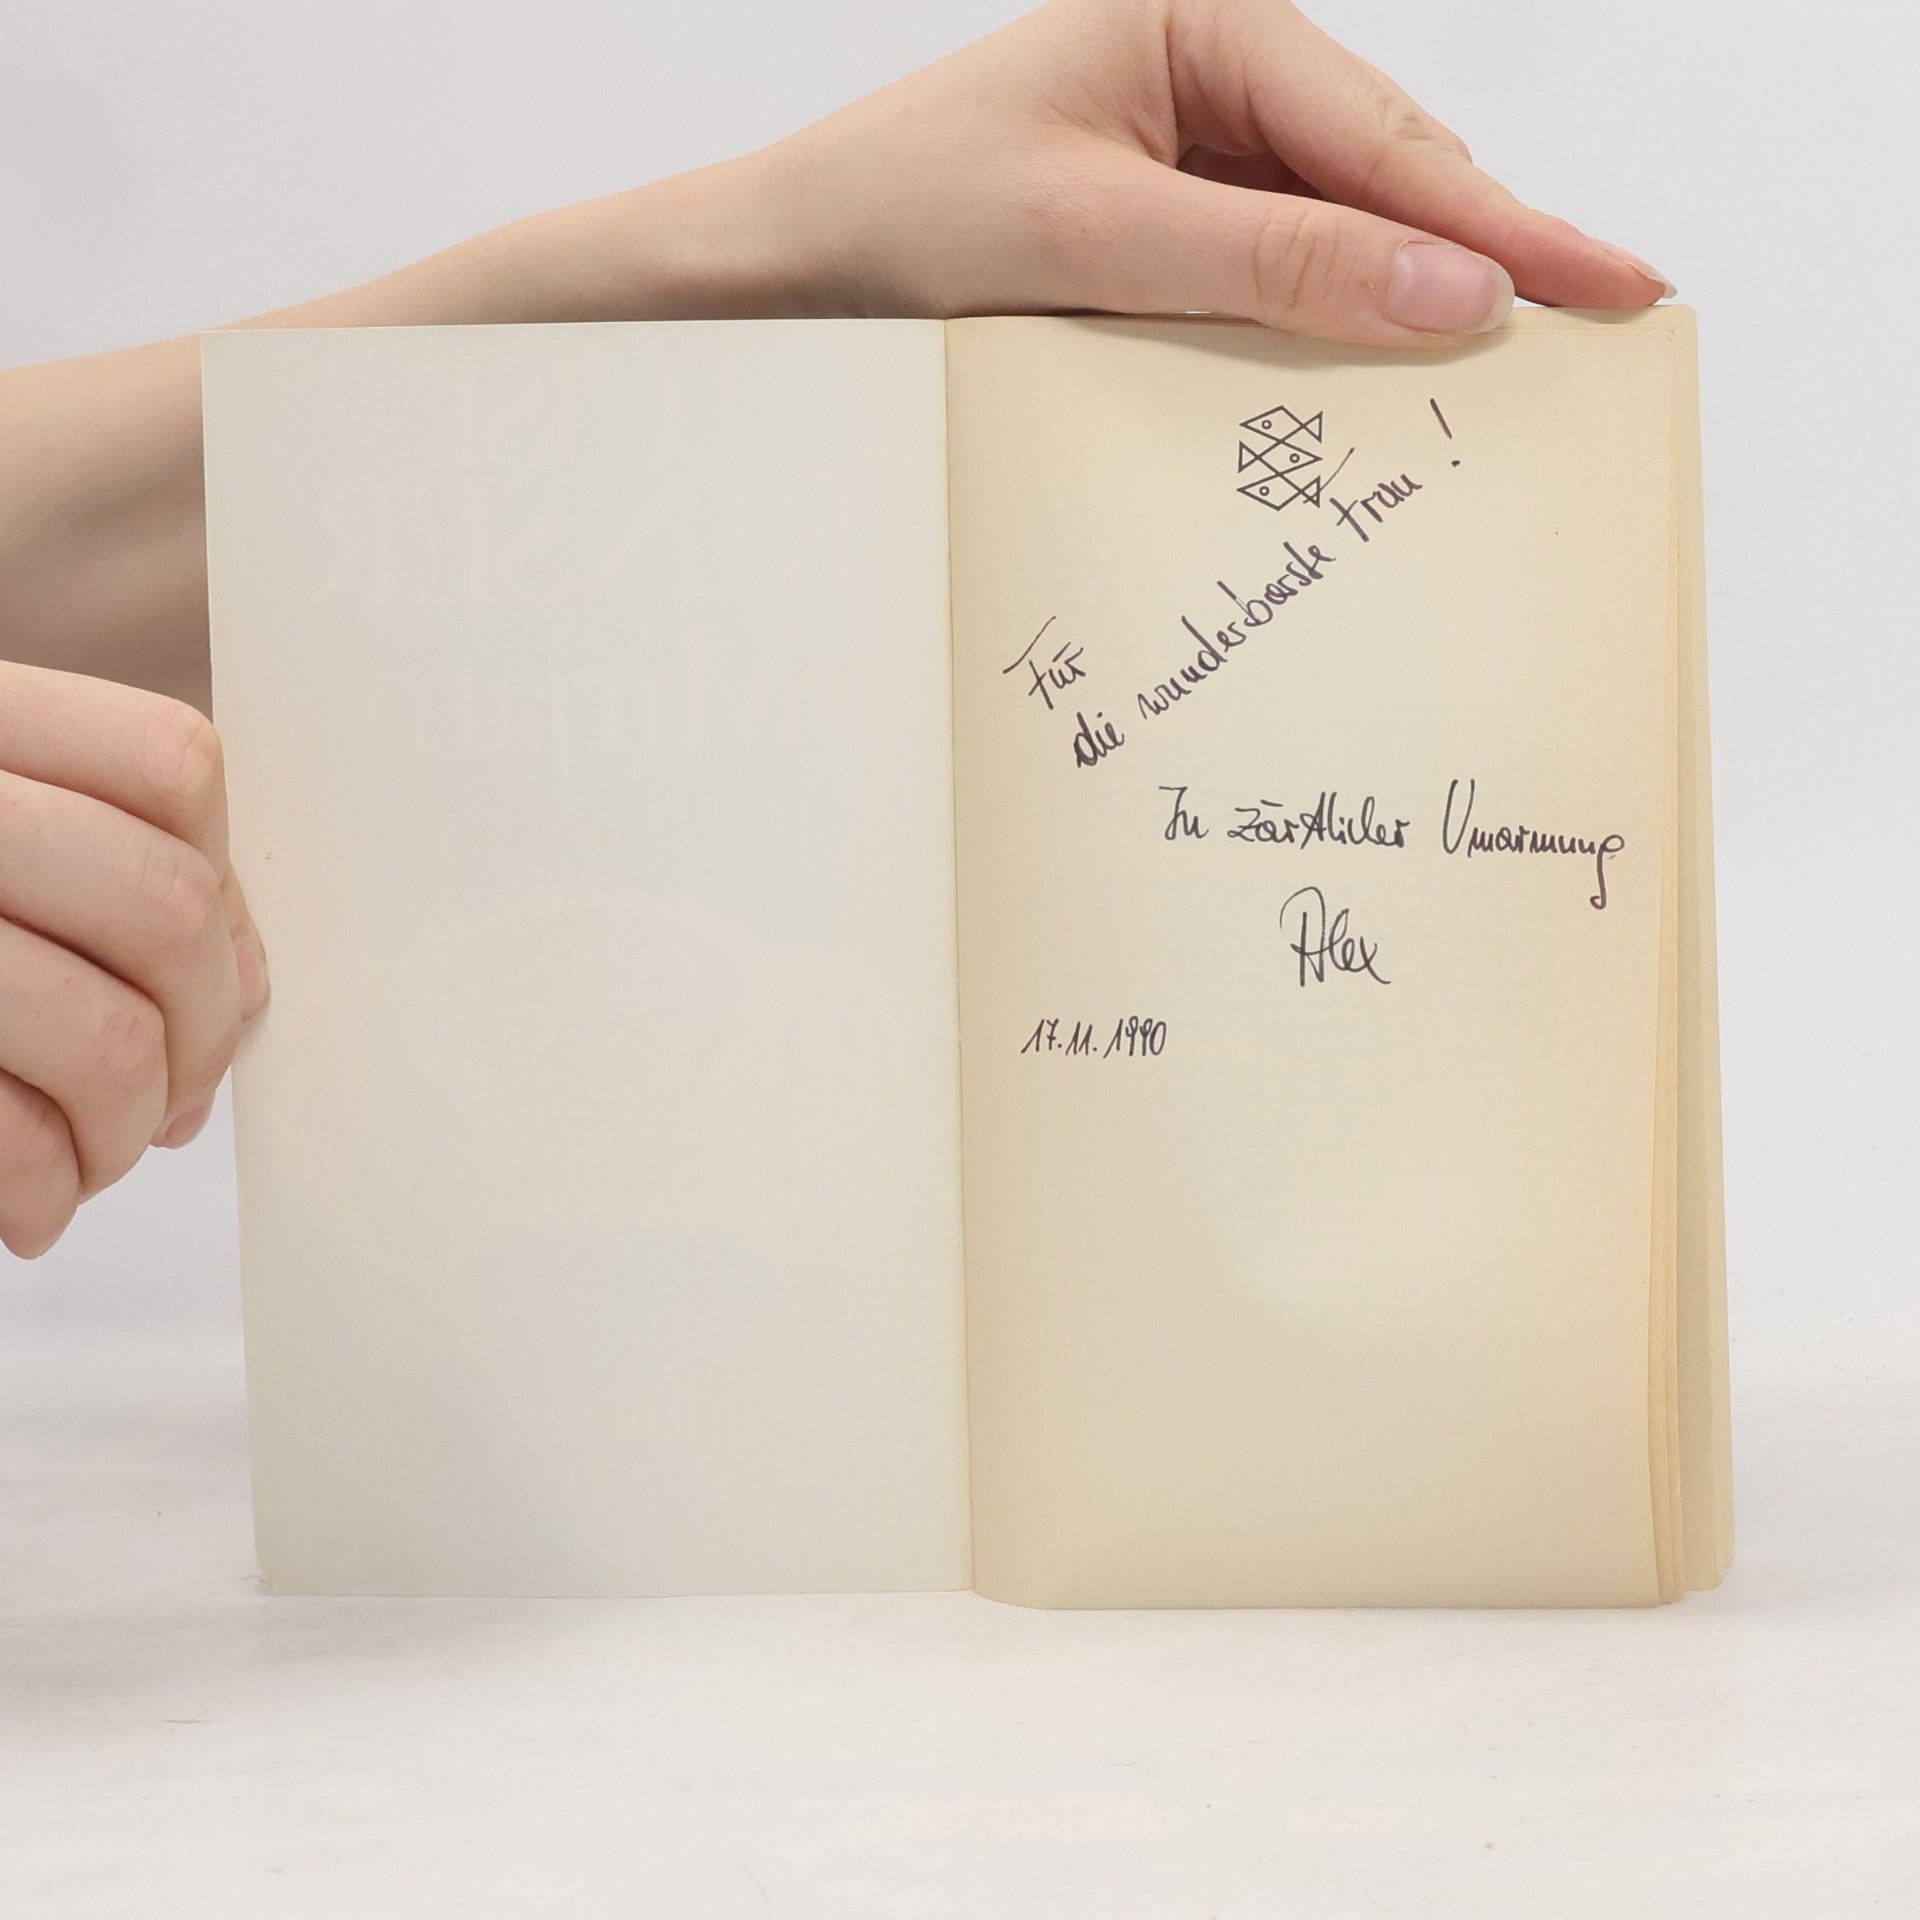 Für
die wunderbarste Frau!
In zärtlicher Umarmung
Alex
17.11.1990